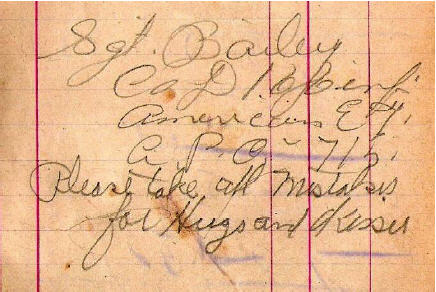 Sgt. Bailey
Co D
American E. F.
A. P. O. 715.
Please take all Mistakes
for Hugs and Kisses